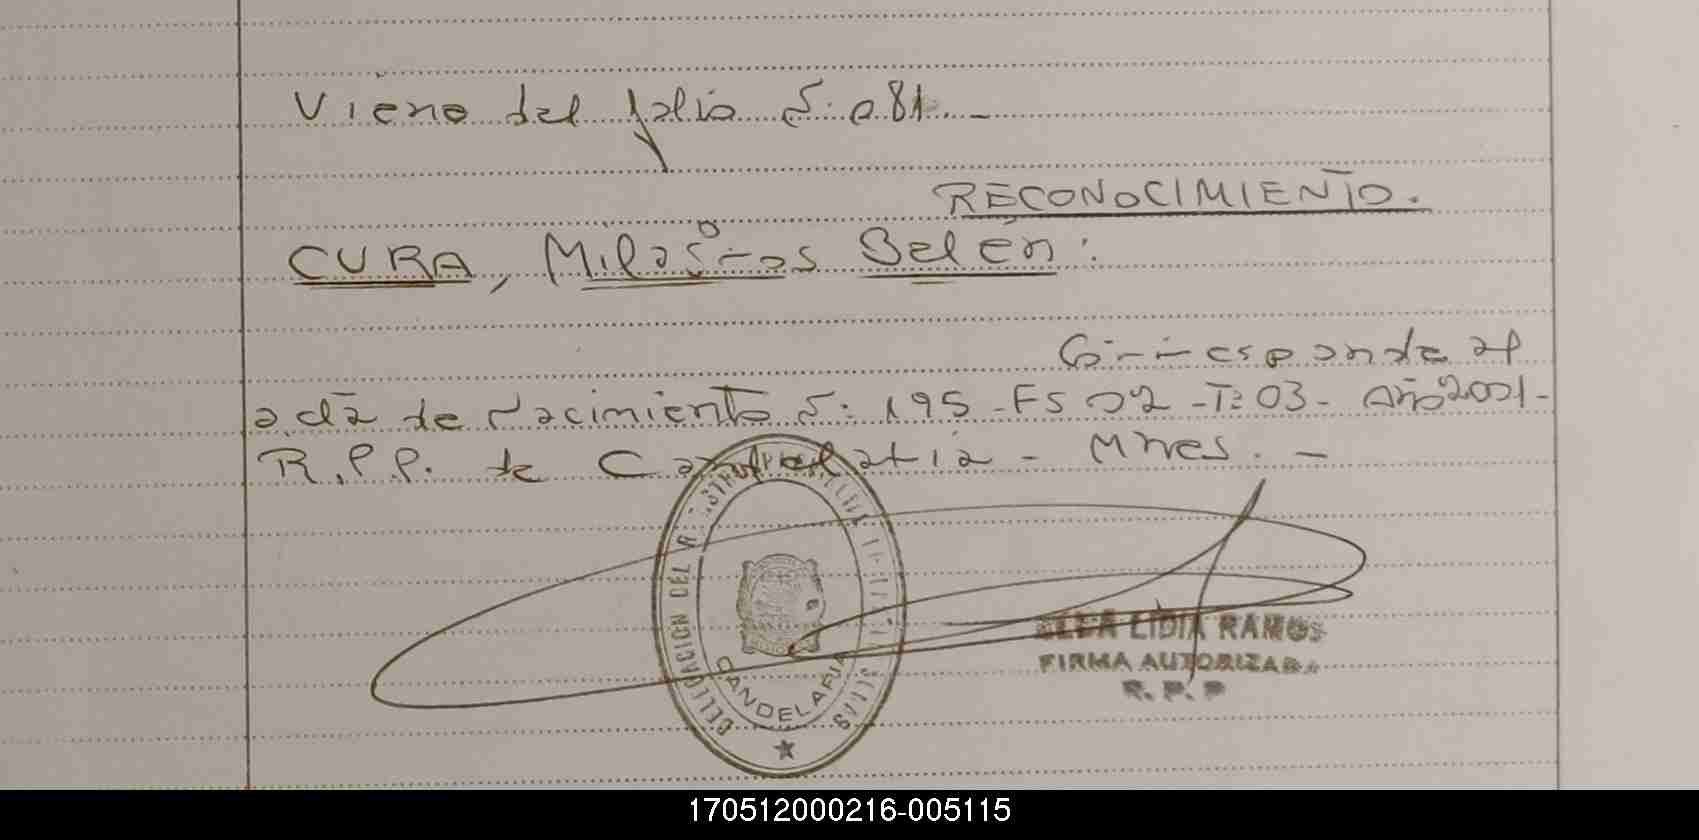 Viene del folio Nº 081.-
RECONOCIMIENTO.
CURA, Milagros Belén:
Corresponde al
acta de Nacimiento Nº 195 - Fs 02 - Tº 03 - Año 2001 -
R.P.P. de Candelaria - Mnes. -
DELEGACION DEL REGISTRO
CANDELARIA
LIDIA RAMOS
FIRMA AUTORIZADA
R. P. P
170512000216-005115